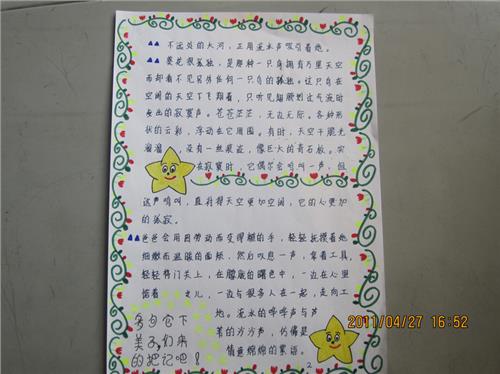 不远处的大河，正用流水声吸引着她。
葵花很孤独，是那种一只鸟拥有万里天空
而却看不见另外任何一只鸟的孤独。这只鸟在
空阔的天空下飞翔着，只听见翅膀划过气流时
发出的寂寞声。苍苍茫茫，无边无际。各种形
状的云彩，浮动在它周围。有时，天空干脆光
溜溜，没有一丝痕迹，像巨大的青石板。实
在寂寞时，它偶尔会鸣叫一声，但
这声鸣叫，直衬得天空更加空阔，它的心更加
的孤寂。
爸爸会用因劳动而变得粗的手，轻轻抚摸着她
细嫩而温暖的面颊，然后叹息一声，拿着工具，
轻轻将门关上，在朦胧的曙色中，一边在心里
惦着女儿，一边与很多人在一起，走向工
地。流水的哗哗声与芦
苇的沙沙声，仿佛是
情意绵绵的絮语。
多句它下
美子们来
的把记吧！
2
2011/04/27 16:52